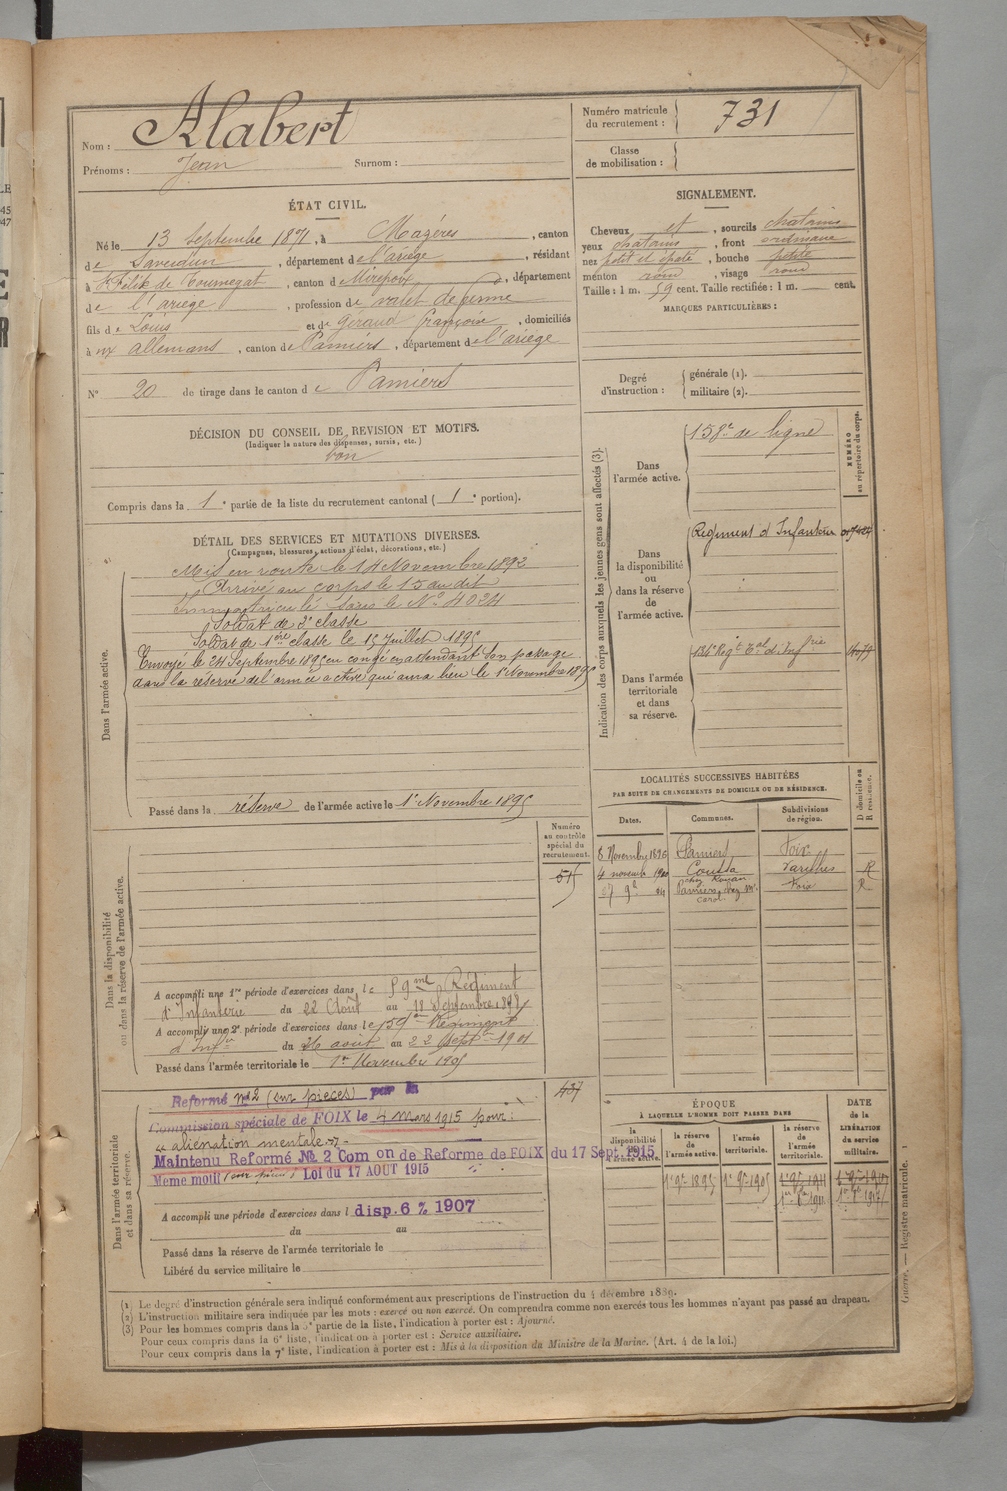 Nom : Alabert
Prénoms : Jean Surnom :
Numéro matricule du recrutement : 731
Classe de mobilisation :
ÉTAT CIVIL.
Né le 13 Septembre 1871, à Mazéres, canton
de Saverdun, département de l'ariège, résidant
à St Félix de Tournegat, canton de Mirepoix, département
de l'ariège, profession de valet de ferme
fils de Louis et de Géraud françoise, domiciliés
à aux allemans, canton de Pamiers, département de l'ariège
N° 20 de tirage dans le canton de Pamiers
SIGNALEMENT.
Cheveux et, sourcils chatains
yeux chatains, front ordinaire
nez petit et épaté, bouche petite
menton rond, visage rond
Taille : 1 m. 59 cent. Taille rectifiée : 1 m. cent.
MARQUES PARTICULIÈRES :
Degré d'instruction : générale (1).
militaire (2).
DÉCISION DU CONSEIL DE REVISION ET MOTIFS.
(Indiquer la nature des dispenses, sursis, etc.)
bon
Compris dans la 1e partie de la liste du recrutement cantonal (1e portion).
DÉTAIL DES SERVICES ET MUTATIONS DIVERSES.
(Campagnes, blessures, actions d'éclat, décorations, etc.)
Dans l'armée active.
Mis en route le 14 Novembre 1892
Arrivé au corps le 15 au dit
Immatriculé sous le N° 4024
Soldat de 2e classe
Soldat de 1ère classe le 15 Juillet 1895
Envoyé le 24 Septembre 1895 en congé en attendant son passage
dans la réserve de l'armée active qui aura lieu le 1er Novembre 1895
Passé dans la réserve de l'armée active le 1er Novembre 1895
Indication des corps auxquels les jeunes gens sont affectés (3).
NUMÉRO au répertoire du corps.
Dans l'armée active.
158e de ligne
Dans la disponibilité ou dans la réserve de l'armée active.
Régiment d'Infanterie
Dans l'armée territoriale et dans sa réserve.
136e Regt Tal d'Infrie
LOCALITÉS SUCCESSIVES HABITÉES
PAR SUITE DE CHANGEMENTS DE DOMICILE OU DE RÉSIDENCE.
Dates. Communes. Subdivisions de région. D domicile ou R résidence.
8 Novembre 1896 Pamiers Foix
4 novembre 1900 Coussa Varilhes R
Pamiers, chez Mr. Carol Foix R
Dans la disponibilité ou dans la réserve de l'armée active.
Numéro au contrôle spécial du recrutement.
A accompli une 1re période d'exercices dans le 59me Régiment
d'Infanterie du 22 Août au 18 Septembre 1898
A accompli une 2e période d'exercices dans le 59e Régiment
d'Infie du 26 août au 22 Septe 1901
Passé dans l'armée territoriale le 1er Novembre 1905
Dans l'armée territoriale et dans sa réserve.
437
Reformé n° 2 (sur pieces) par la
Commission spéciale de FOIX le 4 mars 1915 pour :
"aliénation mentale"
Maintenu Reformé № 2 Com on de Reforme de FOIX du 17 Sept. 1915
Meme motif (sur pièces) Loi du 17 AOUT 1915
A accompli une période d'exercices dans l disp. 6 % 1907
du au
Passé dans la réserve de l'armée territoriale le
Libéré du service militaire le
ÉPOQUE
À LAQUELLE L'HOMME DOIT PASSER DANS
la disponibilité de l'armée active. la réserve de l'armée active. l'armée territoriale. la réserve de l'armée territoriale.
DATE de la LIBÉRATION du service militaire.
1er 9bre 1895 1er 9bre 1905 1er 9bre 1911 1er 9bre 1917
(1) Le degré d'instruction générale sera indiqué conformément aux prescriptions de l'instruction du 4 décembre 1889.
(2) L'instruction militaire sera indiquée par les mots : exercé ou non exercé. On comprendra comme non exercés tous les hommes n'ayant pas passé au drapeau.
(3) Pour les hommes compris dans la 5e partie de la liste, l'indication à porter est : Ajourné.
Pour ceux compris dans la 6e liste, l'indication à porter est : Service auxiliaire.
Pour ceux compris dans la 7e liste, l'indication à porter est : Mis à la disposition du Ministre de la Marine. (Art. 4 de la loi.)
Guerre. — Registre matricule.